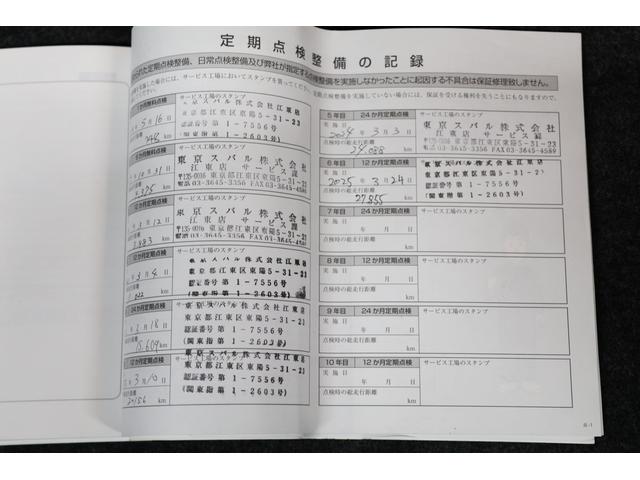 定期点検整備の記録
られた定期点検整備、日常点検整備及び弊社が指定する点検整備を実施しなかったことに起因する不具合は保証修理致しません。
サービス工場においてスタンプを貰ってください。
定期点検整備を実施していない場合には、保証を受ける権利を失うこともありますので、
東京スバル株式会社江東店
東京都江東区東陽5-31-23
認証番号第1-7556号
(関東指第1-2603号)
東京スバル株式会社
江東店 サービス課
〒135-0016 東京都江東区東陽5-31-23
電話 03-3645-3356 FAX 03-3645-4589
東京スバル株式会社
江東店 サービス課
〒135-0016 東京都江東区東陽5-31-23
電話 03-3645-3356 FAX 03-3645-4589
12か月定期点検
サービス工場のスタンプ
東京スバル株式会社江東店
東京都江東区東陽5-31-23
認証番号第1-7556号
(関東指第1-2603号)
24か月定期点検
サービス工場のスタンプ
東京スバル株式会社江東店
東京都江東区東陽5-31-23
認証番号第1-7556号
(関東指第1-2603号)
15,609 km
12か月定期点検
サービス工場のスタンプ
東京スバル株式会社江東店
東京都江東区東陽5-31-23
認証番号第1-7556号
(関東指第1-2603号)
20156 km
5年目 24か月定期点検
サービス工場のスタンプ
実施日
2024年3月3日
点検時の総走行距離
24,088 km
東京スバル株式会社
江東店 サービス課
〒135-0016 東京都江東区東陽5-31-23
電話 03-3645-3356 FAX 03-3645-4589
6年目 12か月定期点検
サービス工場のスタンプ
実施日
2025年3月24日
点検時の総走行距離
27,855 km
東京スバル株式会社江東店
東京都江東区東陽5-31-23
認証番号第1-7556号
(関東指第1-2603号)
7年目 24か月定期点検
サービス工場のスタンプ
実施日
年 月 日
点検時の総走行距離
km
8年目 12か月定期点検
サービス工場のスタンプ
実施日
年 月 日
点検時の総走行距離
km
9年目 24か月定期点検
サービス工場のスタンプ
実施日
年 月 日
点検時の総走行距離
km
10年目 12か月定期点検
サービス工場のスタンプ
実施日
年 月 日
点検時の総走行距離
km